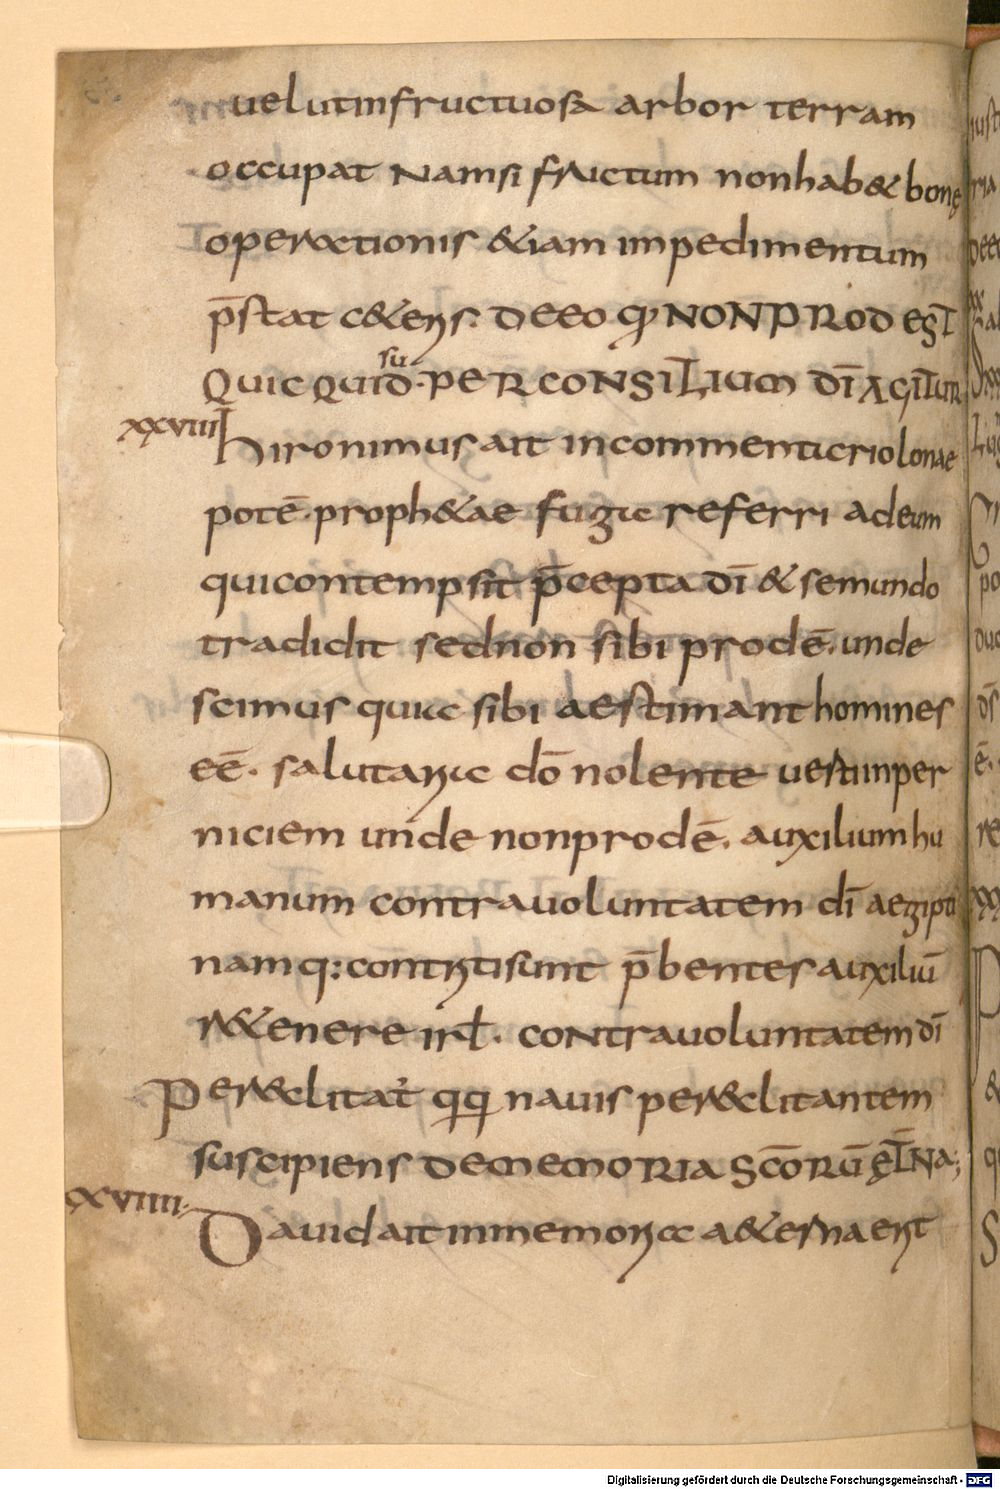 uelut infructuosa arbor terram
occupat Nam si fructum non hab& bonę
operationis & iam impedimentum
p̄stat c&eris. DE EO Q NON PRODEST
QUIC QUID su PER CONSILIUM DĪ AGITUR
xxviii Hironimus ait in commentario Ionae
potē. proph&ae fuga referri ad eum
qui contempsit p̄cepta dī & se mundo
tradidit sed non sibi prodē. unde
scimus quae sibi aestimant homines
eē. salutaria dō nolente uerti in per
niciem unde non prodē. auxilium hu
manum contra uoluntatem dī aegipti
nam q: contriti sunt p̄bentes auxiliū
r&enere irl. contra uoluntatem dī
Periclitat qq nauis periclitantem
suscipiens DE MEMORIA SCŌRŪ ĘTNA;
xxviiii. Dauid ait in memoria a&erna erit
Digitalisierung gefördert durch die Deutsche Forschungsgemeinschaft - DFG